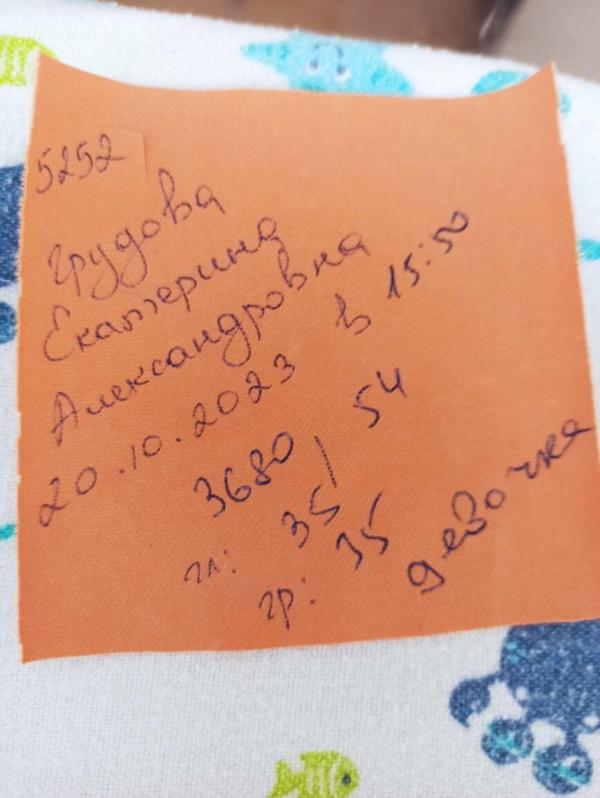 5252
Грудова
Екатерина
Александровна
20.10.2023 в 15:50
3680 / 54
гл: 35
гр: 35
девочка